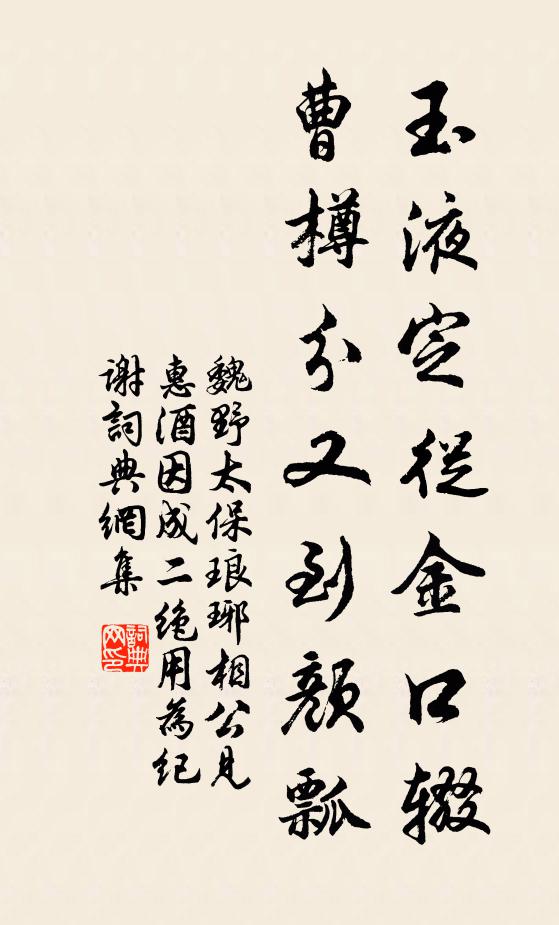 玉液定從金口辍
曹樽分又到顏瓢
魏野太保琅琊相公見
惠酒因成二絶用為紀
謝詞典網集
詞典网印